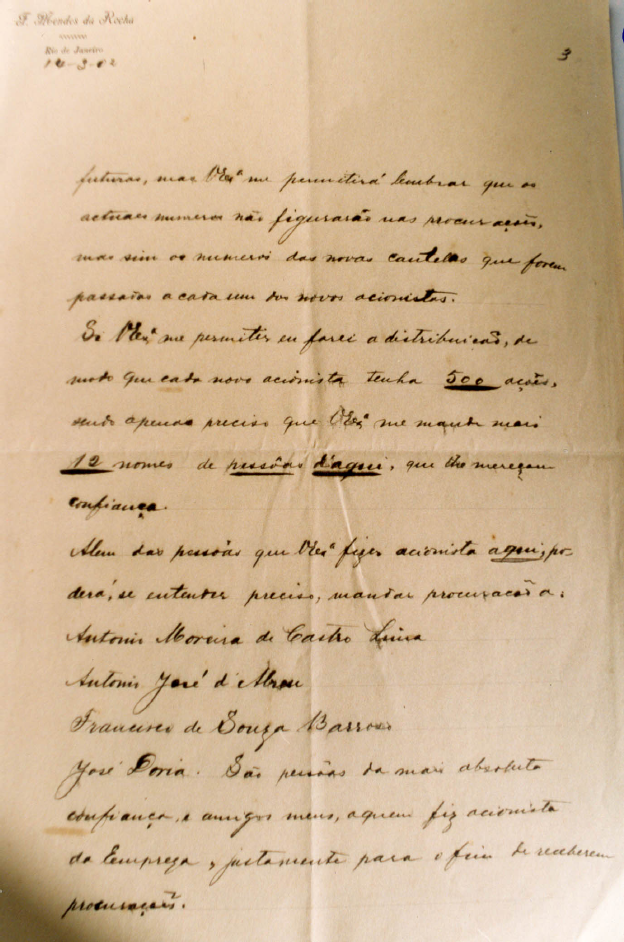 F. Mendes da Rocha
Rio de Janeiro
-3-02
3
futuros, mas VExª me permittirá lembrar que os
actuaes numeros não figurarão nas procurações,
mas sim os numeros das novas cautelas que forem
passadas a cada um dos novos acionistas.
Si VExª me permitter eu farei a distribuição, de
modo que cada novo acionista tenha 500 ações,
sendo apenas preciso que VExª me mande mais
12 nomes de pessôas d'aqui, que lhe mereçam
confiança.
Alem das pessôas que VExª fizer acionista aqui, po-
derá, se entender preciso, mandar procuração a:
Antonio Moreira de Castro Lima
Antonio José d'Abreu
Francisco de Souza Barroso
José Doria. São pessôas da mais absoluta
confiança, e amigos meus, a quem fiz acionista
da Empreza, justamente para o fim de receberem
procurações.